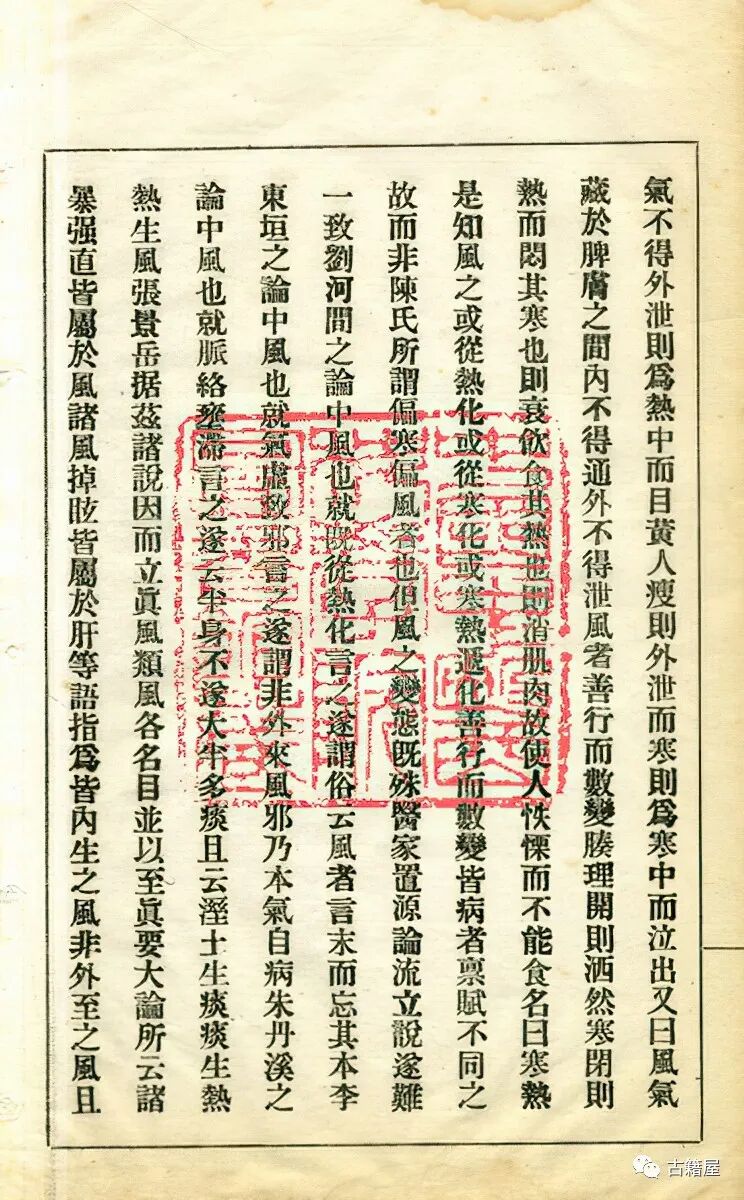 氣不得外泄則爲熱中而目黃人瘦則外泄而寒則爲寒中而泣出又曰風氣
藏於脾膚之間內不得通外不得泄風者善行而數變腠理開則洒然寒閉則
熱而悶其寒也則衰飲食其熱也則消肌肉故使人怢慄而不能食名曰寒熱
是知風之或從熱化或從寒化或寒熱遞化善行而數變皆病者禀賦不同之
故而非陳氏所謂偏寒偏風者也但風之變態既殊醫家置源論流立說遂難
一致劉河間之論中風也就既從熱化言之遂謂俗云風者言末而忘其本李
東垣之論中風也就氣虛致邪言之遂謂非外來風邪乃本氣自病朱丹溪之
論中風也就脈絡壅滯言之遂云半身不遂大半多痰且云溼土生痰痰生熱
熱生風張景岳据茲諸說因而立眞風類風各名目並以至眞要大論所云諸
暴强直皆屬於風諸風掉眩皆屬於肝等語指爲皆內生之風非外至之風且
古籍屋